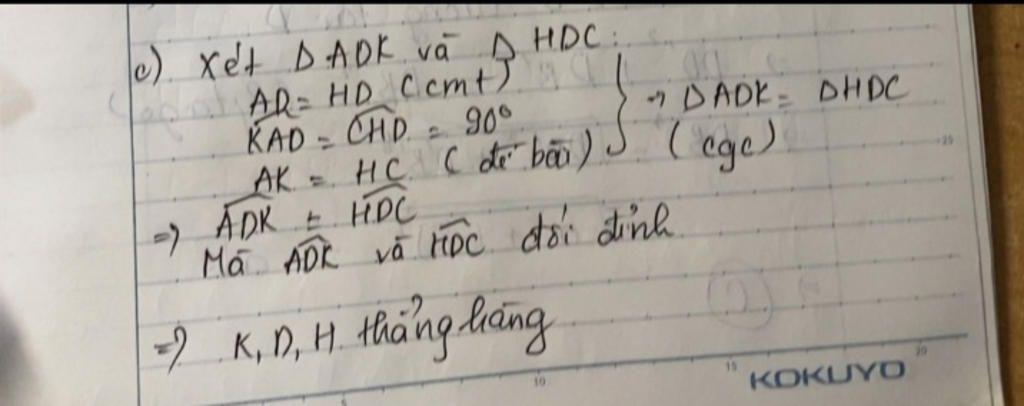 c) Xét Δ ADK và Δ HDC:
AD = HD (cmt)
KAD = CHD = 90°
AK = HC (đề bài)
→ ΔADK = ΔHDC
(cgc)
=> ADK = HDC
Mà ADK và HDC đối đỉnh
=> K, D, H thẳng hàng
5 10 15 20
25
KOKUYO